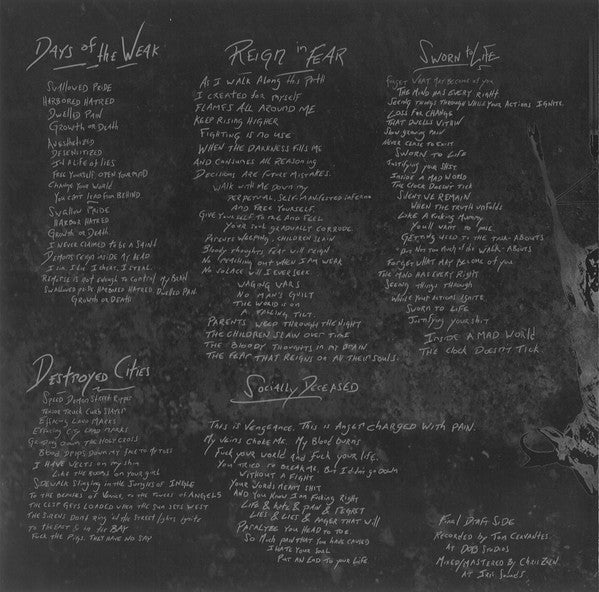 Days of the Weak
Swallowed Pride
Harbored Hatred
Dwelled Pain
Growth or Death
Anesthetized
Desensitized
In a life of lies
Free yourself, open your mind
Change your world
You can't lead from behind
Swallow Pride
Harbor Hatred
Growth or Death
I never claimed to be a saint
Demons reign inside my head
I sin. I lie. I cheat. I steal.
Remorse is not enough to control my brain
Swallowed pride Harbored Hatred Dwelled Pain
Growth or Death
Destroyed Cities
Speed Demon
Truck Curb Slayer
Effacing Land Marks
Effacing City Land Marks
Grinding down the holy cross
Blood drips down my
I have welts on my shin
Like the rooms on your girl
Sidewalk Slinging in the Jungles of Ingle
To the beaches of Venice, to the towers of Angels
The clip gets loaded when the sun sets west
The sirens don't ring til the street lights ignite
to the East & in the Bay
Fuck the Pigs. They have no say
Reign in Fear
As I walk along this path
I created for myself
Flames all around me
Keep rising higher
Fighting is no use
When the darkness fills me
And consumes all reasoning
Decisions are future mistakes.
Walk with me down my
perpetual, self-manifested inferno
And free yourself.
Give yourself to me and feel
Your soul gradually corrode.
Parents weeping, children slain
Bloody thoughts fear will reign
No reaching out when I'm weak
No solace will I ever seek
Waging wars
No man's guilt
The world is on
A falling tilt.
Parents weep through the night
The children slain over time
The bloody thoughts in my brain
The fear that reigns on all their souls.
Socially Deceased
This is vengeance. This is anger charged with pain.
My veins choke me. My blood burns
Fuck your world and fuck your life.
You tried to break me, but I didn't go down
without a fight.
Your words meant shit
And you know I'm fucking right
Life & hate & pain & regret
Lies & lies & anger that will
Paralyze you head to toe
So much pain that you have caused
I hate your soul
Put an end to your life.
Sworn to Life
Forget what may become of you
The mind has every right
Seeing things through while your actions ignite.
Loss for change
That dwells within
Slow growing pain
Never cease to exist
Sworn to life
Justifying your shit
Inside a mad world
The clock doesn't tick
Silent we remain
When the truth unfolds
Like a fucking mummy
You'll want to pose
Getting held to the
But not too much of the where abouts
Forget what may become of you
The mind has every right
Seeing things through
While your actions ignite
Sworn to life
Justifying your shit
Inside a mad world
The clock doesn't tick
Final Draft Side
Recorded by Tom Cervantes
at DOB Studios
Mixed/Mastered by Chris
at Iris Sounds